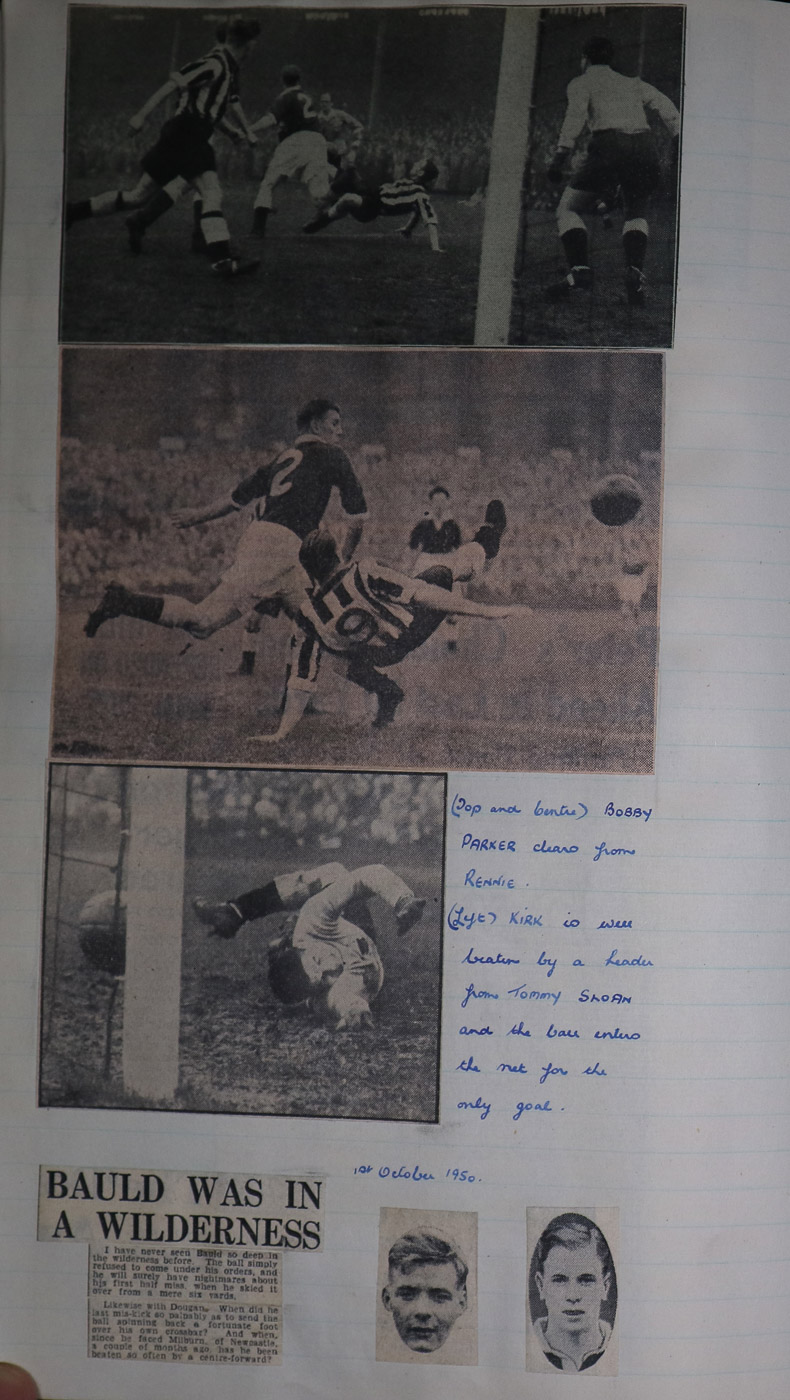 2
2
9
(Top and Centre) BOBBY
PARKER clears from
RENNIE.
(Left) KIRK is well
beaten by a header
from Tommy SLOAN
and the ball enters
the net for the
only goal.
1st October 1950.
BAULD WAS IN
A WILDERNESS
I have never seen Bauld so deep in
the wilderness before. The ball simply
refused to come under his orders, and
he will surely have nightmares about
his first half miss, when he skied it
over from a mere six yards.
Likewise with Dougan. When did he
last mis-kick so palpably as to send the
ball spinning back a fortunate foot
over his own crossbar? And when,
since he faced Milburn, of Newcastle,
a couple of months ago, has he been
beaten so often by a centre-forward?